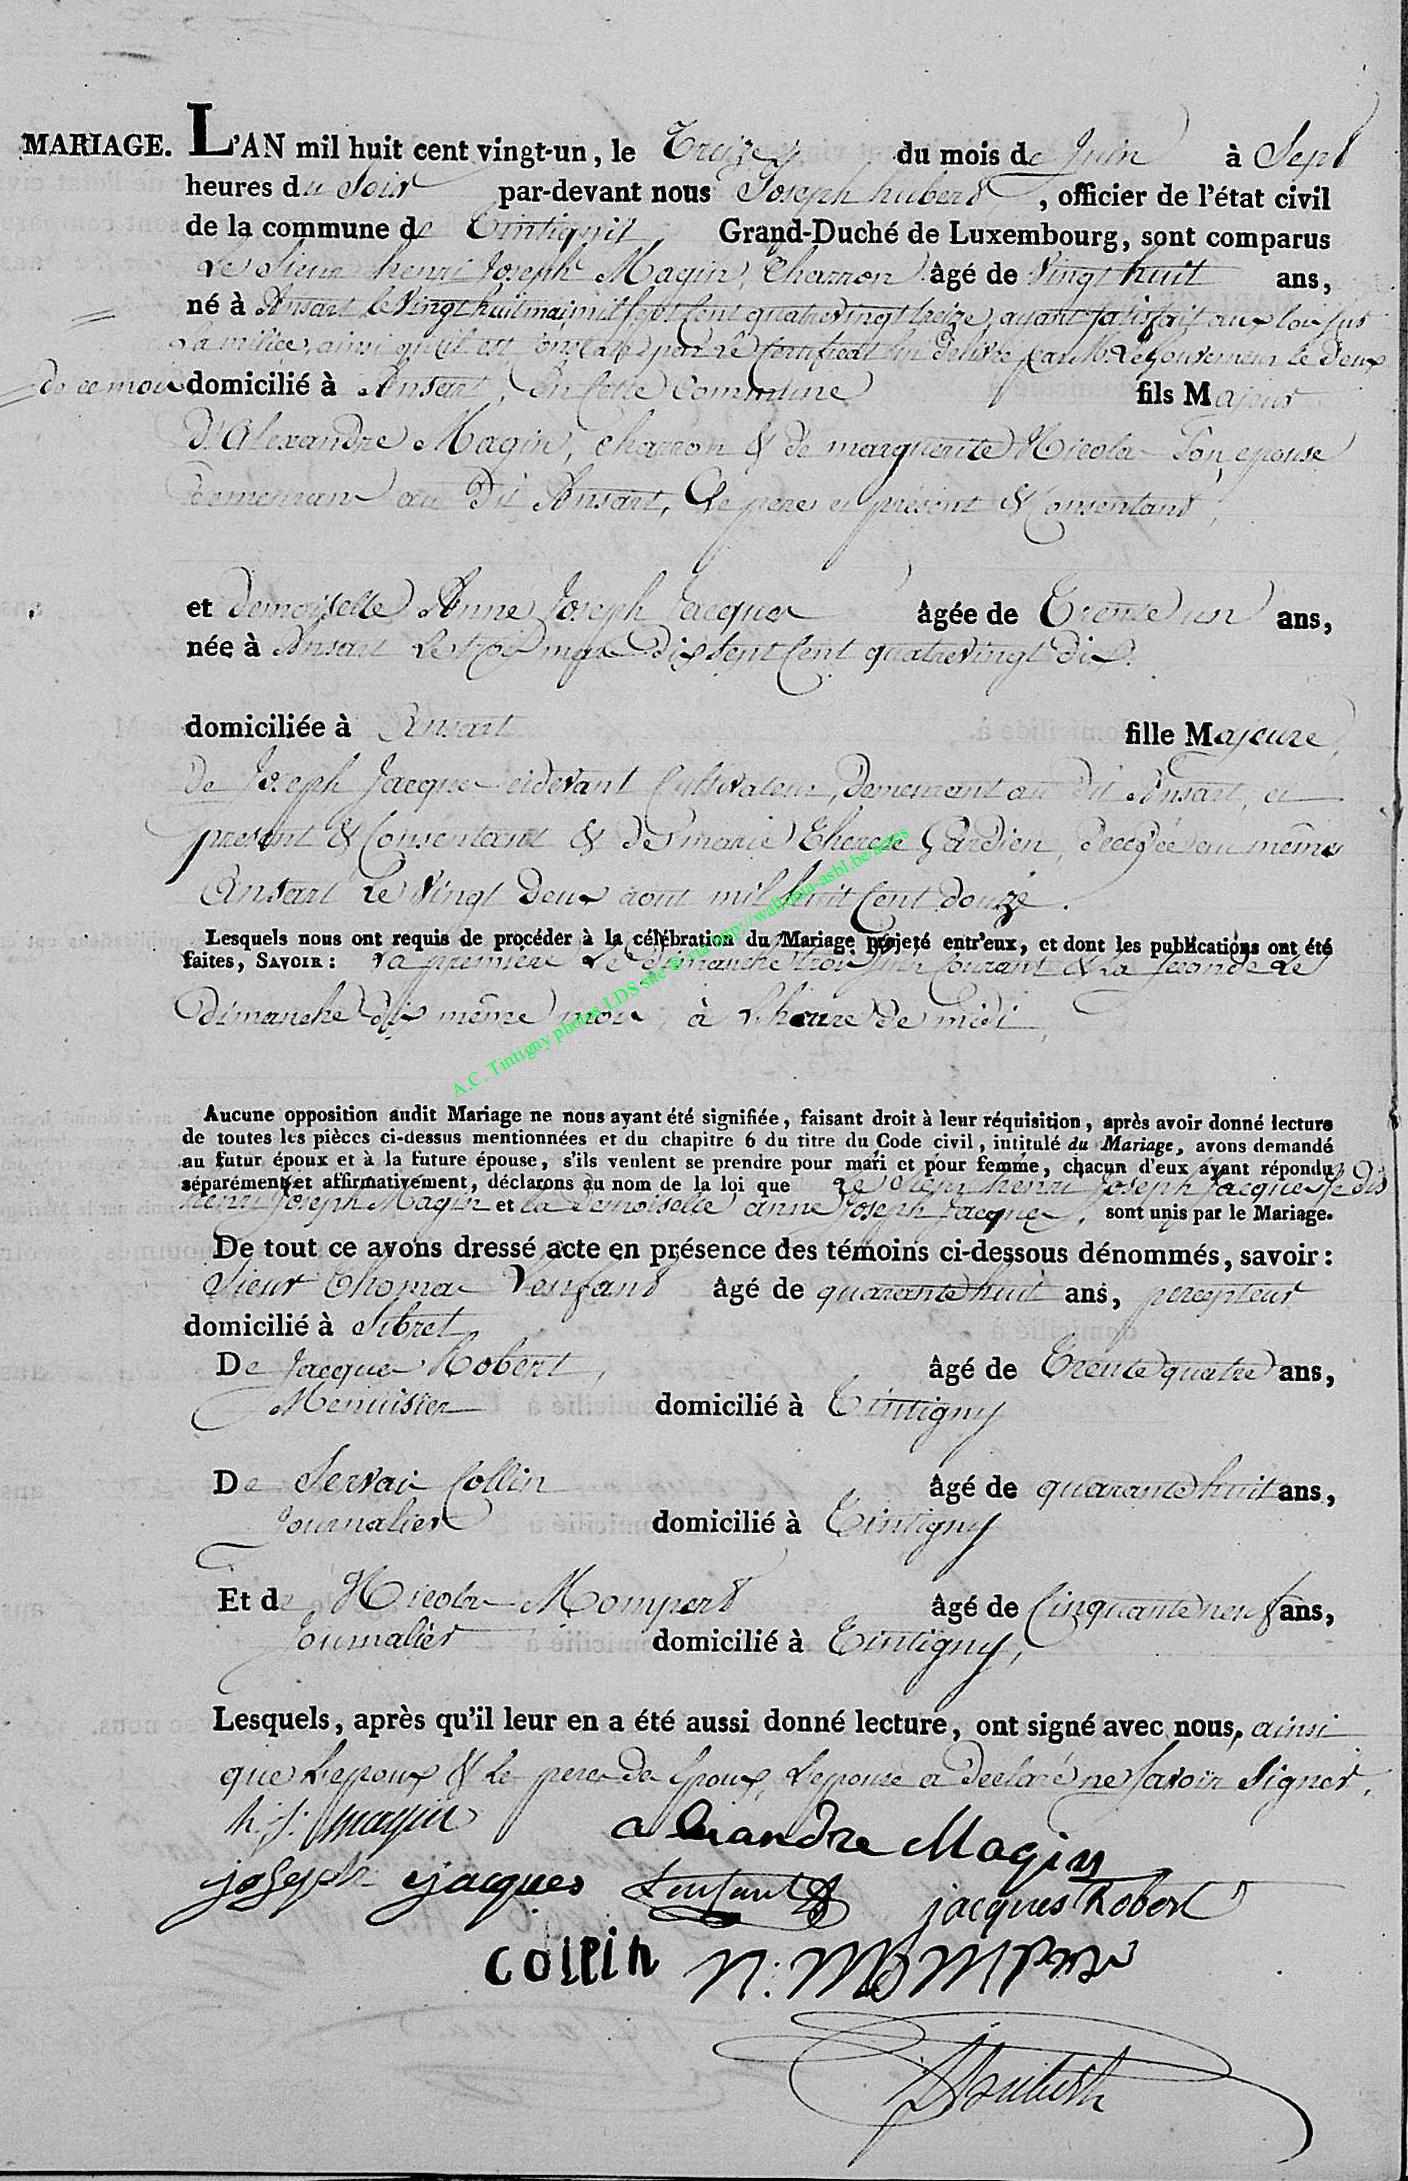 MARIAGE. L'AN mil huit cent vingt-un, le Treize du mois de Juin à Sept
heures du Soir par-devant nous Joseph hubert, officier de l'état civil
de la commune de Tintigny, Grand-Duché de Luxembourg, sont comparus
Le Sieur henri Joseph Magin, Charron âgé de Vingt huit ans,
né à Ansart le Vingt huit mai mil sept Cent quatrevingt treize, ayant satisfait aux loix sur
La milice, ainsi qu'il est par le Certificat delivré par Mr. Le Gouverneur le deux
de ce mois domicilié à Ansart, en Cette Commune fils Majeur
D'Alexandre Magin, charron & de marguerite Nicolas Son epouse
demeurant au Dit Ansart, Le pere ici present & Consentant,
et demoiselle Anne Joseph Jacques âgée de Trente un ans,
née à Ansart Le trois mars Dix Sept Cent quatrevingt dix.
domiciliée à Ansart fille Majeure,
De Joseph Jacques cidevant Cultivateur, Demeurant au Dit Ansart, ici
present & Consentant & De marie Therese Gardien, decedée au même
Ansart Le Vingt Deux aout mil huit Cent douze.
Lesquels nous ont requis de procéder à la célébration du Mariage projeté entr'eux, et dont les publications ont été
faites, SAVOIR : La premiere Le dimanche trois Juin Courant & La Seconde Le
Dimanche dix même mois, à L'heure de midi,
A.C. Tintigny photos LDS site @ via http://wallonia-asbl.be/actes
Aucune opposition audit Mariage ne nous ayant été signifiée, faisant droit à leur réquisition, après avoir donné lecture
de toutes les pièces ci-dessus mentionnées et du chapitre 6 du titre du Code civil, intitulé du Mariage, avons demandé
au futur époux et à la future épouse, s'ils veulent se prendre pour mari et pour femme, chacun d'eux ayant répondu
séparément et affirmativement, déclarons au nom de la loi que Le Sieur henri Joseph Jacques Je dis
henri Joseph Magin et la Demoiselle anne Joseph Jacques, sont unis par le Mariage.
De tout ce avons dressé acte en présence des témoins ci-dessous dénommés, savoir :
Sieur Thomas Lenfant âgé de quarante huit ans, percepteur
domicilié à Sibret
De Jacques Robert, âgé de Trente quatre ans,
Menuisier domicilié à Tintigny
De Servais Collin âgé de quarante huit ans,
Journalier domicilié à Tintigny
Et de Nicolas Mompert âgé de Cinquante neuf ans,
Journalier domicilié à Tintigny,
Lesquels, après qu'il leur en a été aussi donné lecture, ont signé avec nous, ainsi
que L'epoux & Le pere de Epoux, L'epouse a declaré ne Savoir Signer.
h. j. magin alexandre Magin
joseph jacques Lenfant jacques Robert
collin n: Mompert
Hubert